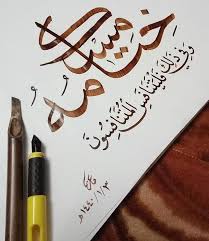 ختامه مسك
وَفِي ذَلِكَ فَلْيَتَنَافَسِ الْمُتَنَافِسُونَ
١٤٤٠/١/٣هـ